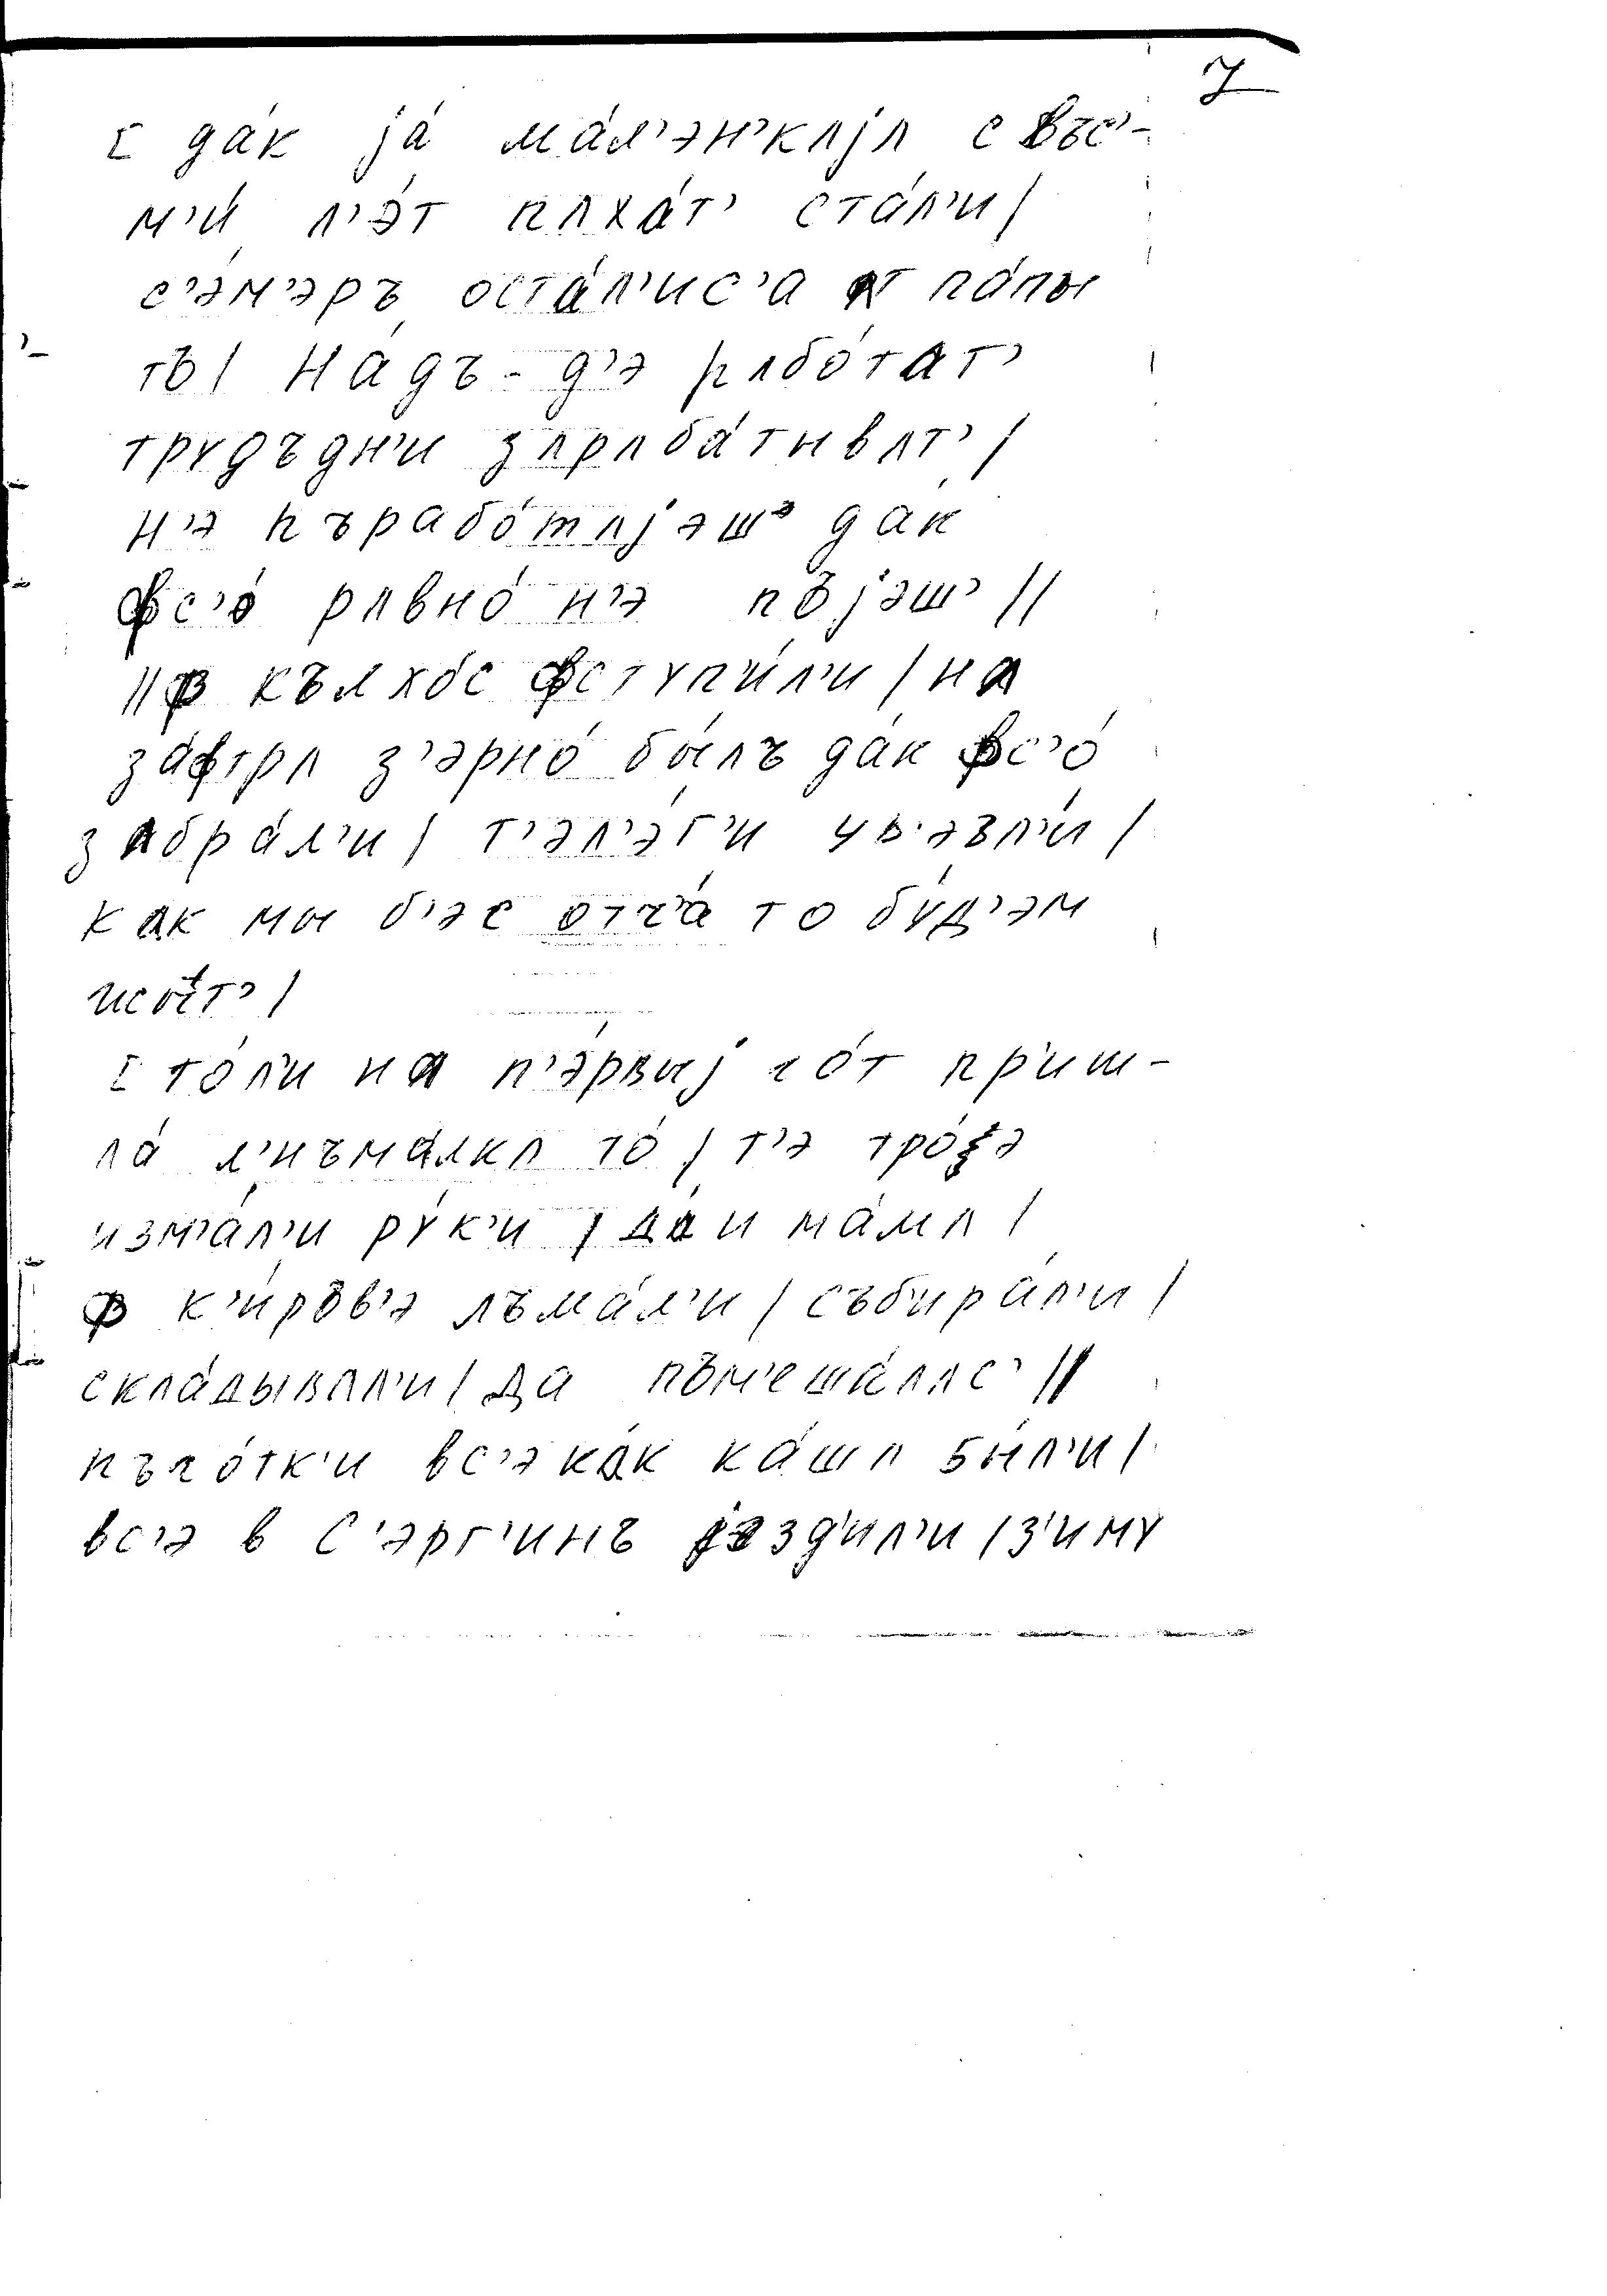 7
[ да́к jа́ ма́л’эн’кʌjʌ с въс’-
м’и́ л’э́т пʌха́т’ ста́л’и /
с’э́м’эръ оста́л’ис’а ʌт па́пы
тъ / На́дъ - д’э рʌбо́тат’
трудъдн’и зʌрʌба́тывʌт’ /
н’э пърабо́тʌjэш’ дак
фс’о́ рʌвно́ н’э пъjэш’ //
// ф кълхо́с фступ’и́л’и / на
за́фтрʌ з’эрно́ бы́лъ да́к фс’о́
зʌбра́л’и / т’эл’э́г’и ув’эзл’и́ /
как мы б’эс отца́ то бу́д’эм
[ то́л’и на п’э́рвыj го́т пр’иш-
ла́ л’нъма́лкʌ то́ / т’э тро́зэ
изм’а́л’и ру́к’и / да и ма́мʌ /
ф к’и́ров’э лъма́л’и / съб’ира́л’и /
скла́дывʌл’и / да пъм’еша́лʌс’ //
пъго́тк’и вс’эка́к ка́шʌ бы́л’и /
вс’э в С’эрг’инъ jэзд’ил’и / з’иму